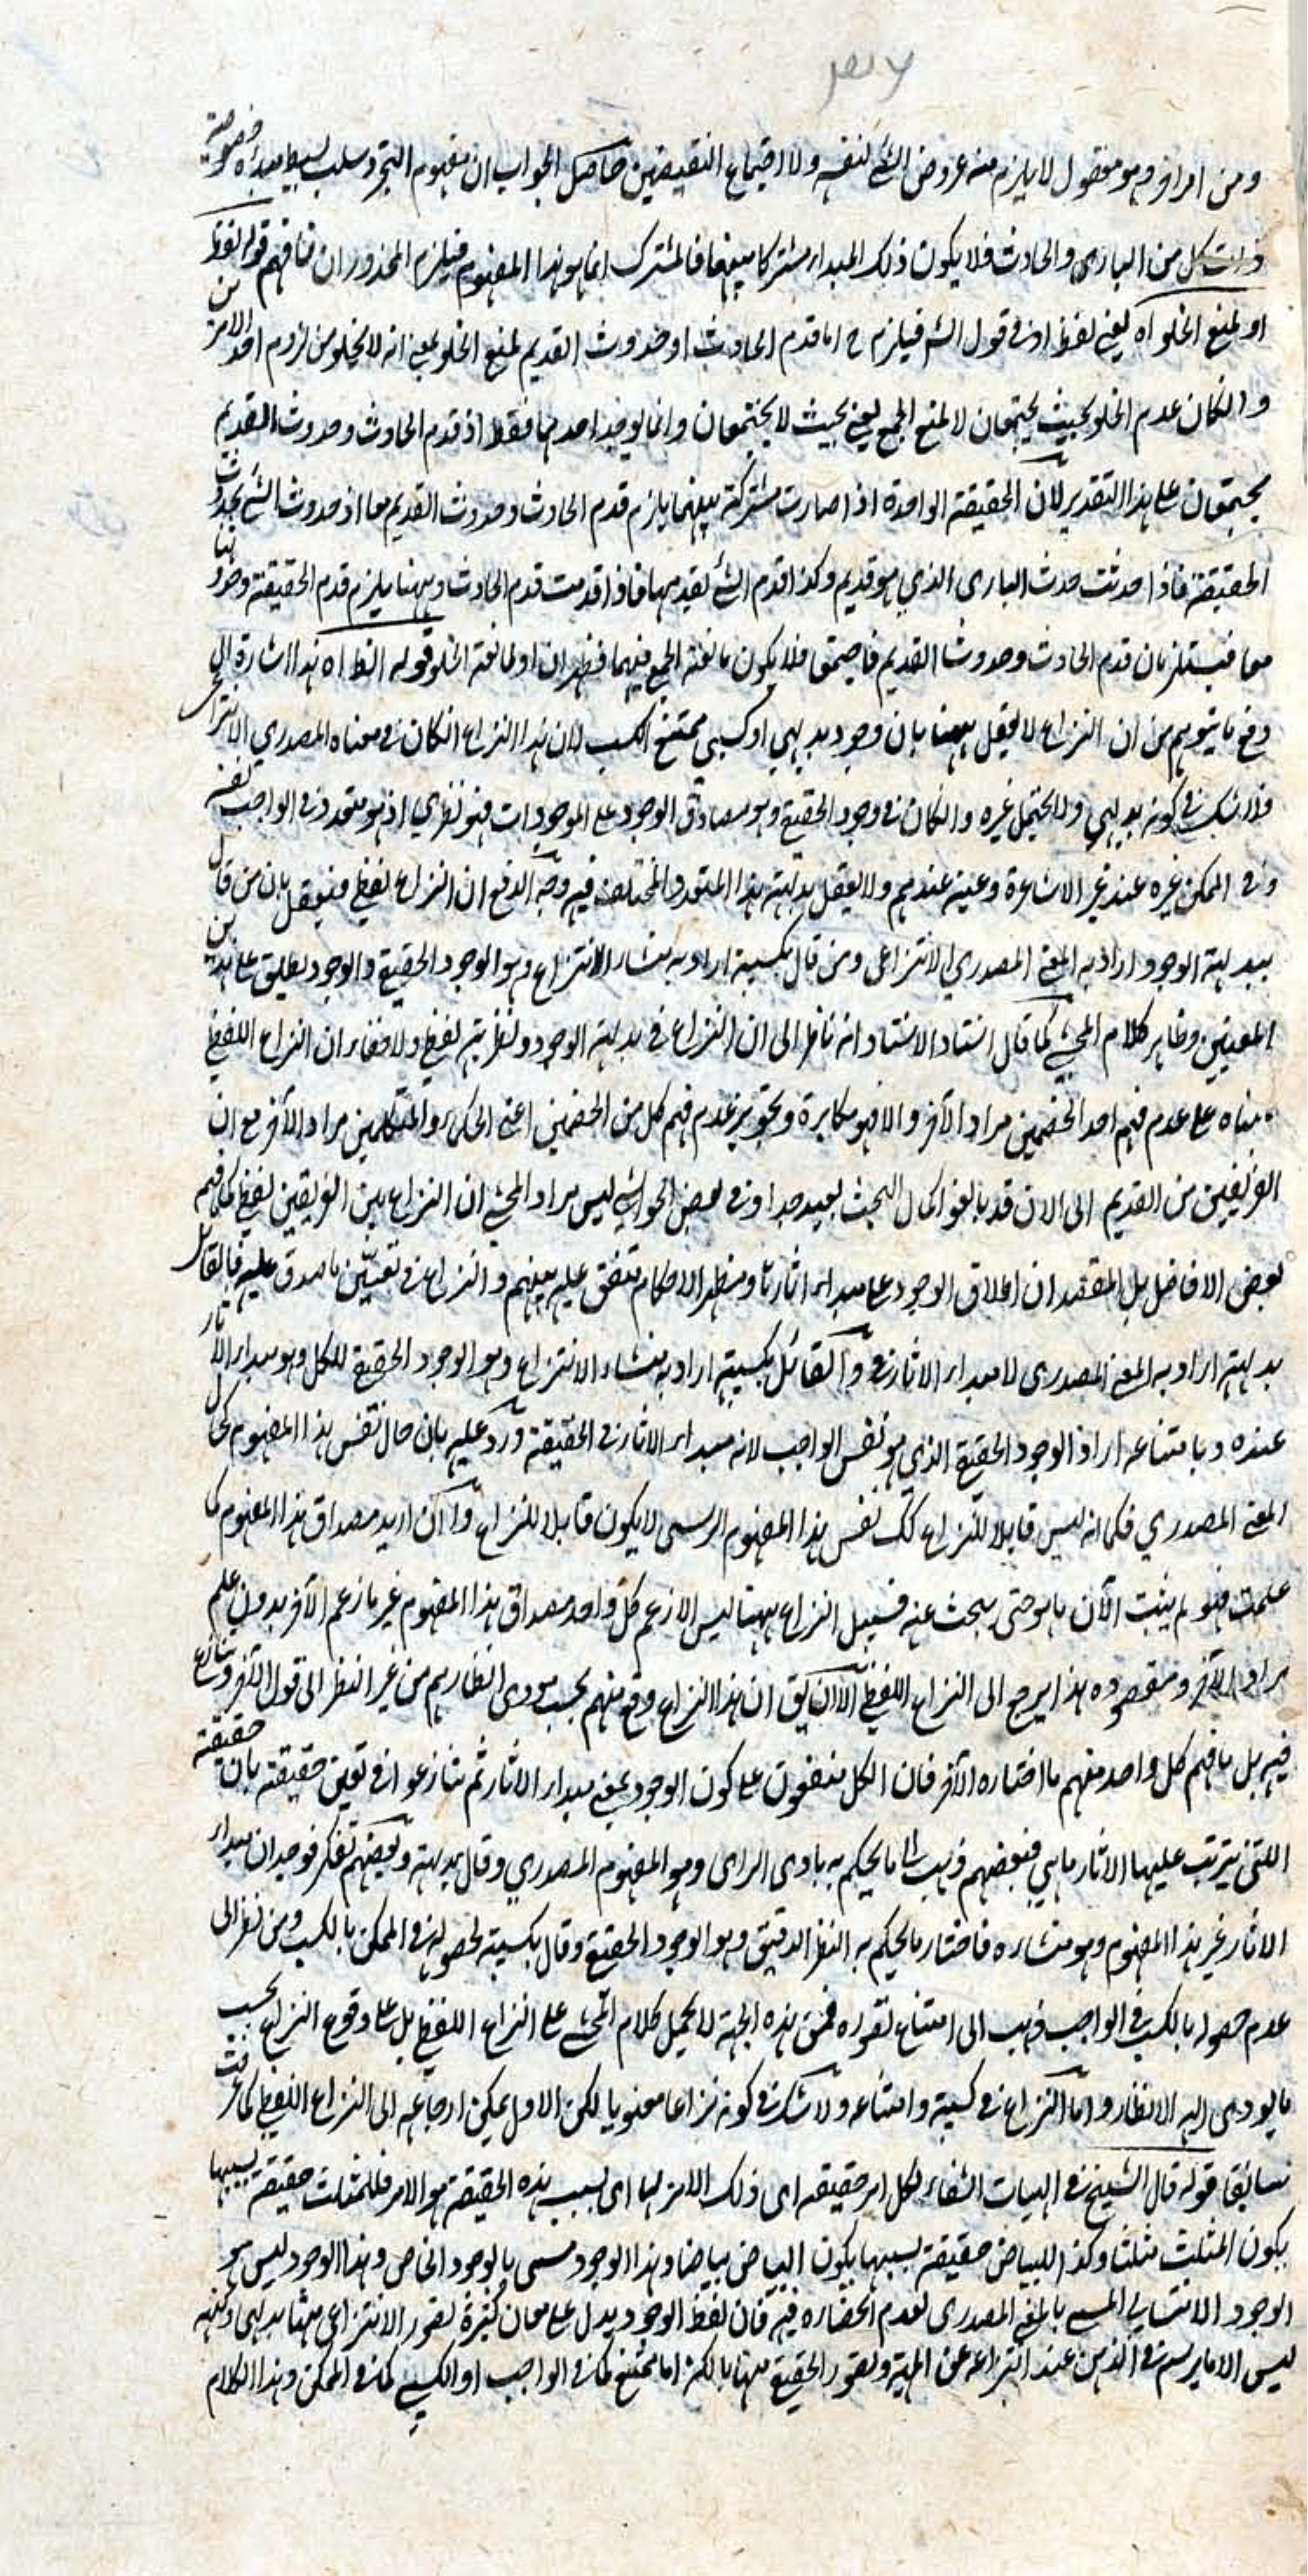 ومن امر اخر وهو معقول لا يلزم منه عروض الشئ لنفسه ولا اجتماع النقيضين حاصل الجواب ان مفهوم التجرد سلب بسيط مبدئه خصوصية
ذات كل من البارى والحادث فلا يكون ذلك المبدا مشتركا بينهما فالمشترك انما هو هذا المفهوم فيلزم المحذوران فافهم قوله لفظ
او لمنع الخلو اه يعني لفظ او في قول الشم فيلزم ح اما قدم الحادث او حدوث القديم لمنع الخلو بمعنى انه لا يخلو من لزوم احد الامرين
والكان عدم الخلو بحيث يجتمعان لا لمنع الجمع يعني بحيث لا يجتمعان وانما يوجد احدهما فقط اذ قدم الحادث وحدوث القديم
يجتمعان على هذا التقدير لان الحقيقة الواحدة اذا صارت مشتركة بينهما يلزم قدم الحادث وحدوث القديم معا اذ حدوث الشئ بحدوث
الحقيقة فاذا حدثت حدث البارى الذي هو قديم وكذا قدم الشئ بقدمها فاذا قدمت قدم الحادث وههنا يلزم قدم الحقيقة وحدوثها
معا فيستلزمان قدم الحادث وحدوث القديم فاجتمعا فلا يكون مانعة الجمع فيهما فظهر ان او لمانعة الخلو قوله النظ اه هذا اشارة الى
دفع ما يتوهم من ان النزاع لا يعقل ههنا بان وجود بديهي او كسبي ممتنع الكسب لان هذا النزاع انكان في معناه المصدري الانتزاعي
فلا شك في كونه بديهي ولا يحتمل غيره وانكان في وجود الحقيقة وهو مصداق الوجود على الموجودات فهو نظري اذ هو متحد في الواجب نفسه
وفي الممكن غيره عند غير الاشاعرة وعينه عندهم ولا يعقل بداهته هذا المتعدد المختلف فيه وجه الدفع ان النزاع لفظي فيعقل بان من قال
ببداهة الوجود اراد به المعنى المصدري الانتزاعى ومن قال بكسبية اراد به منشاء الانتزاع وهو الوجود الحقيقي والوجود يطلق على هذين
المعنيين وظاهر كلام المحشي كما قال استاد الاستاد انه ناظر الى ان النزاع في بداهة الوجود ونظريته لفظي ولا خفاء ان النزاع اللفظي
مبناه على عدم فهم احد الخصمين مراد الآخر والا فهو مكابرة وتجويز عدم فهم كل من الخصمين اعني الحكماء والمتكلمين مراد الآخر مع ان
الفريقين من القديم الى الان قد بالغوا كمال البحث بعيد جدا وفي بعض الحواشي ليس مراد المحشي ان النزاع بين الفريقين لفظي كما فهم
بعض الافاضل بل المقصد ان اطلاق الوجود على مبدا الآثار ومظهر الاحكام متفق عليه بينهم والنزاع في تعيين ما صدق عليه فالقائل
بداهته اراد به المعنى المصدرى لا مبدا الاثار والقائل بكسبيته اراد به منشاء الانتزاع وهو الوجود الحقيقي للكل وهو مبدا الاثار
عنده وبامتناعه اراد الوجود الحقيقي الذي هو نفس الواجب لانه مبدا الاثار في الحقيقة ورد عليه بان حال نفس هذا المفهوم كحال
المعنى المصدري فكما انه ليس قابلا للنزاع كك نفس هذا المفهوم الرسمي لا يكون قابلا للنزاع وان اريد مصداق هذا المفهوم كما
علمت فهو لم يثبت الآن ما هو حتى يبحث عنه فسبيل النزاع ههنا ليس الا زعم كل واحد مصداق هذا المفهوم غير ما زعم الآخر بدون علم
مراد الآخر ومقصوده هذا يرجع الى النزاع اللفظي الا ان يق ان هذا النزاع وقع منهم بحسب مودى انظارهم من غير النظر الى قول الآخر وتنازع
فيه بل ما فهم كل واحد منهم ما اختاره الآخر فان الكل متفقون على كون الوجود بمعنى مبدا الاثار ثم تنازعوا في تعيين حقيقته بان حقيقة
اللتي يترتب عليها الاثار ما هي فبعضهم ذهب الى ما يحكم به بادى الراى وهو المفهوم المصدري وقال بداهته وبعضهم تفكر فوجد ان مبدا
الاثار غير هذا المفهوم وهو منشاءه فاختار ما يحكم به النظر الدقيق وهو الوجود الحقيقي وقال بكسبيته لحصوله في الممكن بالكسب ومن نظر الى
عدم حصوله بالكسب في الواجب ذهب الى امتناع تصوره فمن هذه الجهة لا يحمل كلام المحشي على النزاع اللفظي بل على وقوع النزاع بحسب
ما يودى اليه الانظار واما النزاع في كسبيته وامتناعه ولا شك في كونه نزاعا معنويا لكن الاول يمكن ارجاعه الى النزاع اللفظي كما عرفت
سابقا قوله قال الشيخ في الهيات الشفاء لكل امر حقيقة اى ذلك الامر بها اى بسبب هذه الحقيقة هو الامر فللمثلث حقيقة بسببها
يكون المثلث مثلثا وكذا للبياض حقيقة بسببها يكون البياض بياضا وهذا الوجود مسمى بالوجود الخاص وهذا الوجود ليس هو
الوجود الانتسابي المسمى بالمعنى المصدرى لعدم انحصاره فيه فان لفظ الوجود يدل على معان كثيرة تصور الانتزاعى منها بديهى وكنهه
ليس الا ما يرسم في الذهن عند انتزاعه عن المهية وتصور الحقيقي منها بالكنه اما ممتنع كما في الواجب او الكسبي كما في الممكن وهذا الكلام